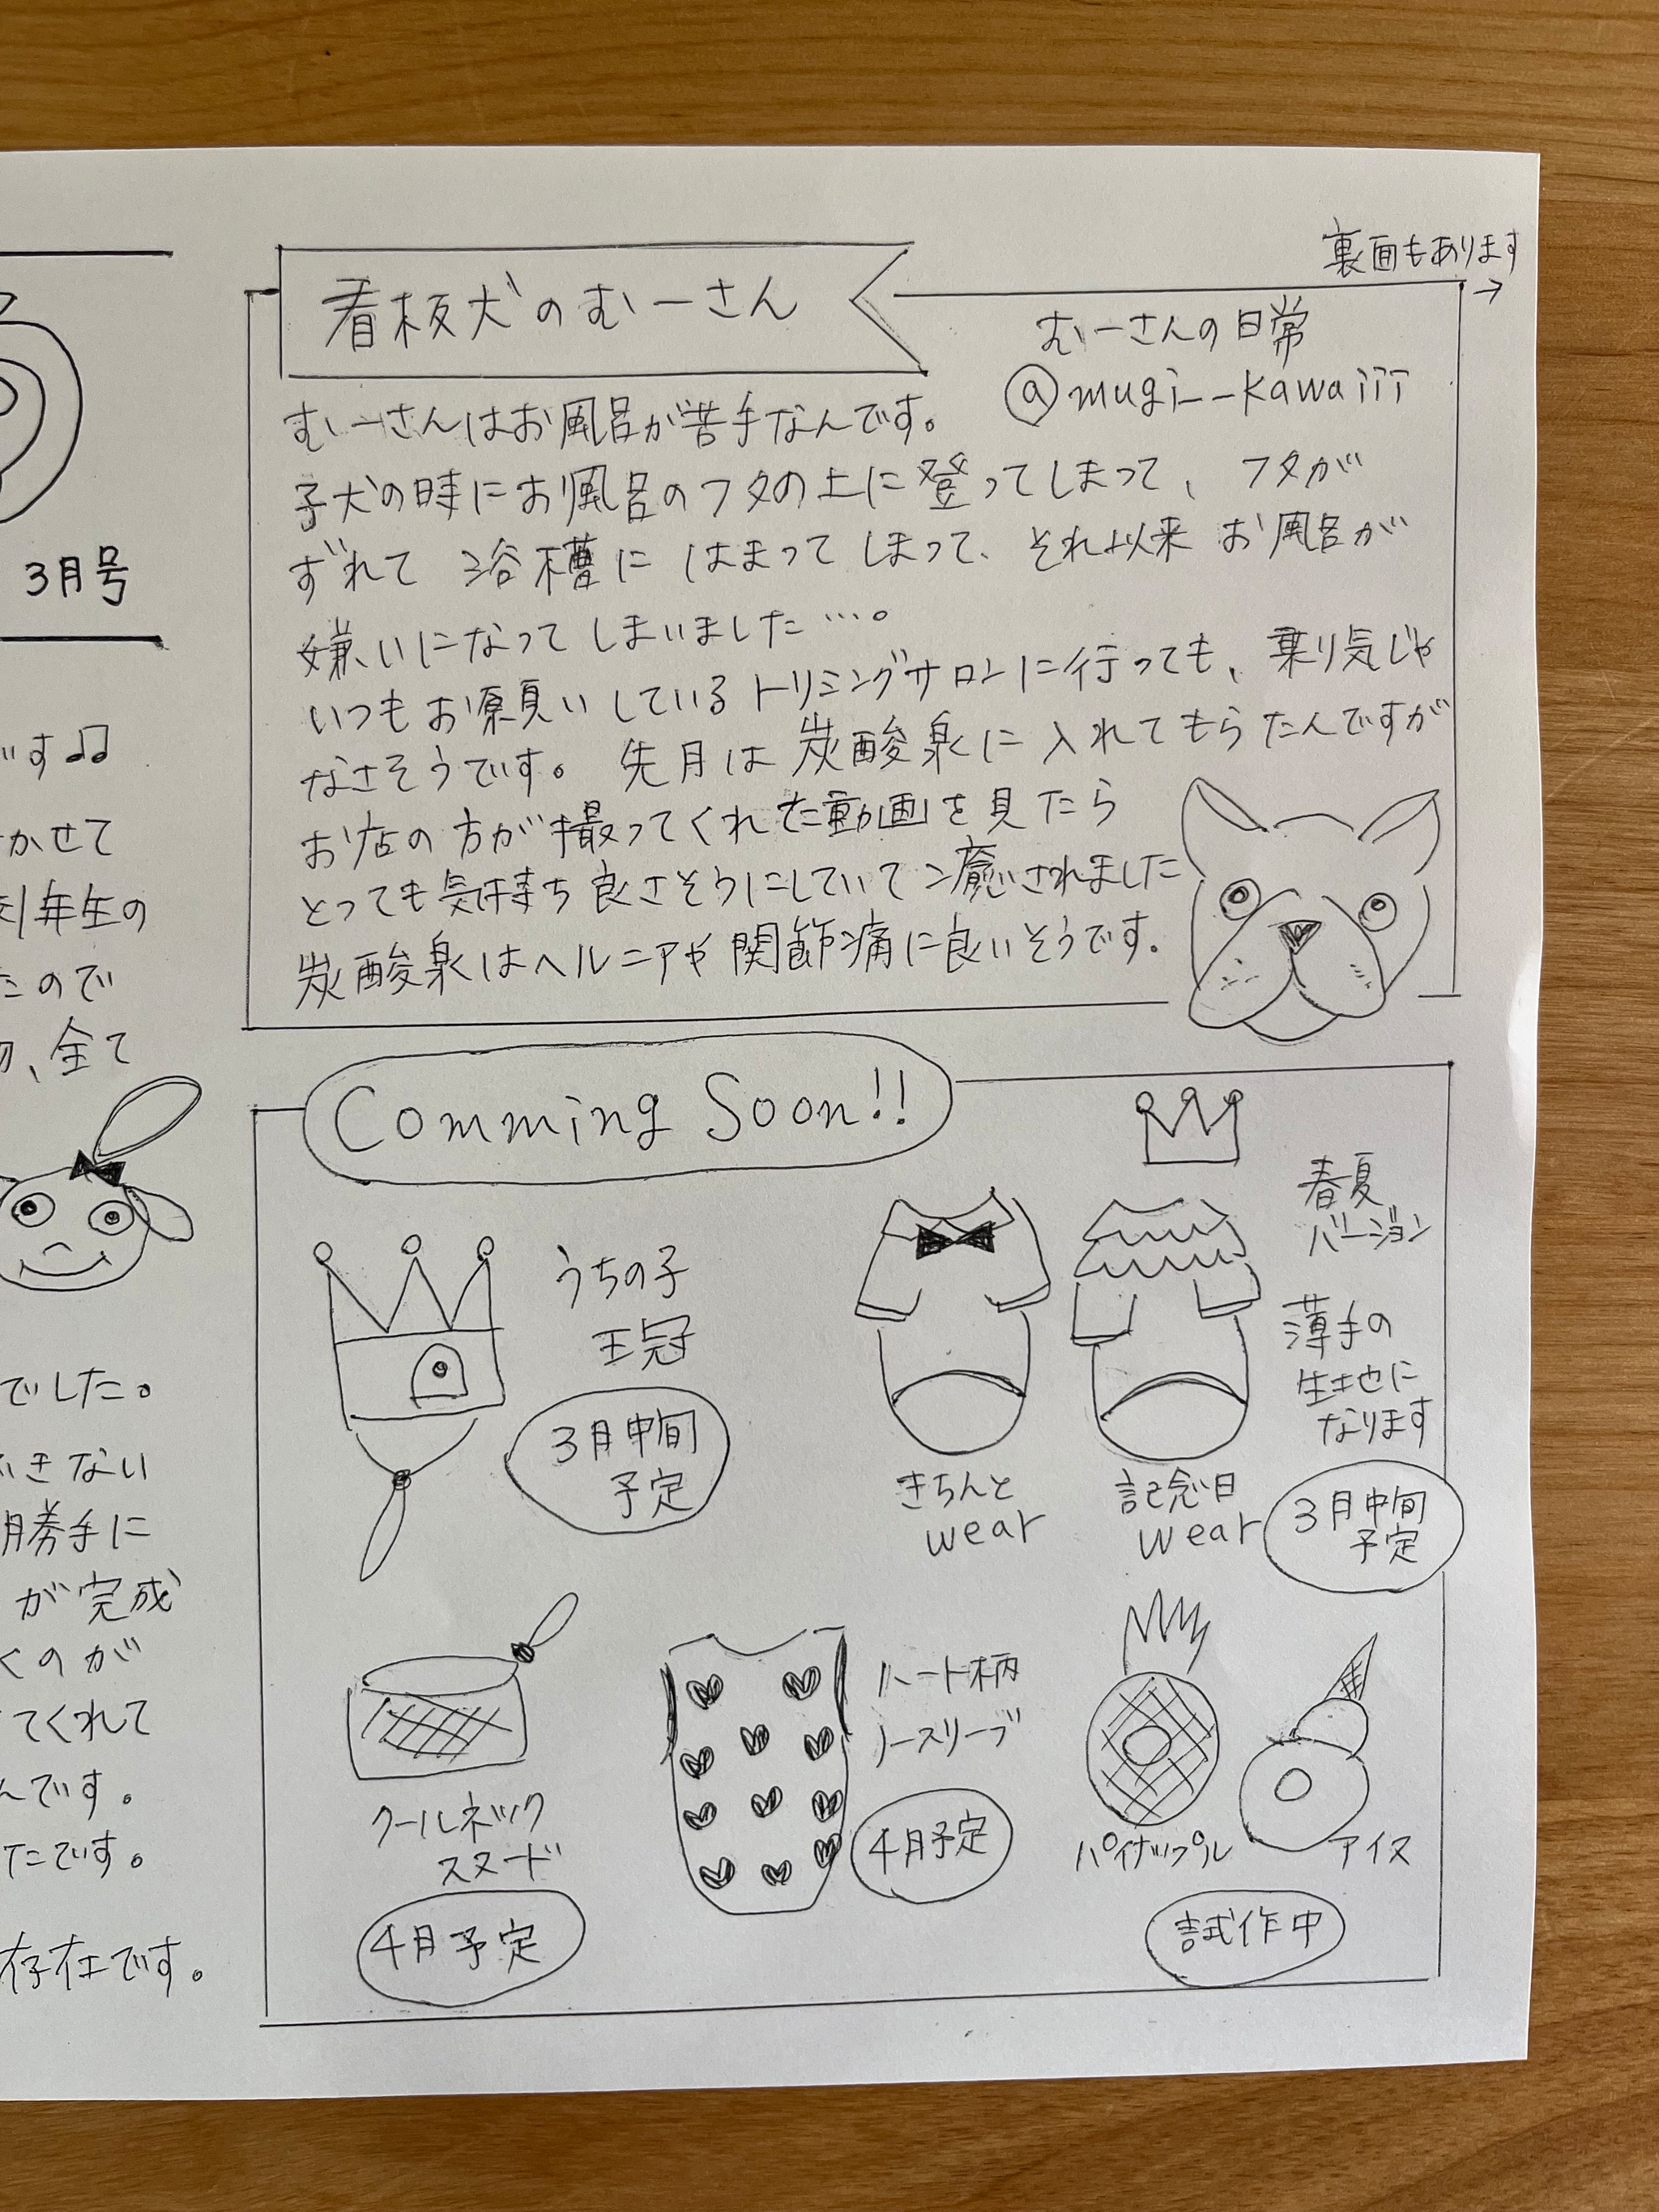 3月号
です♫
かせて
1年生の
たので
、全て
でした。
きない
勝手に
が完成
くのが
てくれて
んです。
たです。
存在です。
裏面もあります
→
看板犬のむーさん
むーさんの日常
@mugi__kawaiii
むーさんはお風呂が苦手なんです。
子犬の時にお風呂のフタの上に登ってしまって、フタが
ずれて浴槽にはまってしまって、それ以来お風呂が
嫌いになってしまいました…。
いつもお願いしているトリミングサロンに行っても、乗り気じゃ
なさそうです。先月は炭酸泉に入れてもらたんですが
お店の方が撮ってくれた動画を見たら
とっても気持ち良さそうにしていて癒されました
炭酸泉はヘルニアや関節痛に良いそうです。
Comming Soon!!
うちの子
王冠
3月中旬
予定
春夏
バージョン
薄手の
生地に
なります
きちんと
wear
記念日
wear
3月中旬
予定
クールネック
スヌード
4月予定
ハート柄
ノースリーブ
4月予定
パイナップル
アイス
試作中